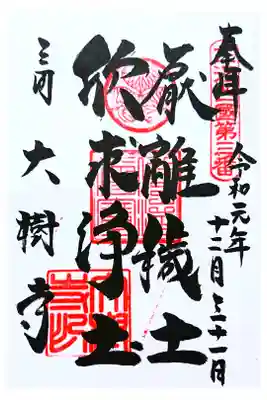 奉拝
令和元年
十二月二十一日
厭離穢土
欣求浄土
三河
大樹寺